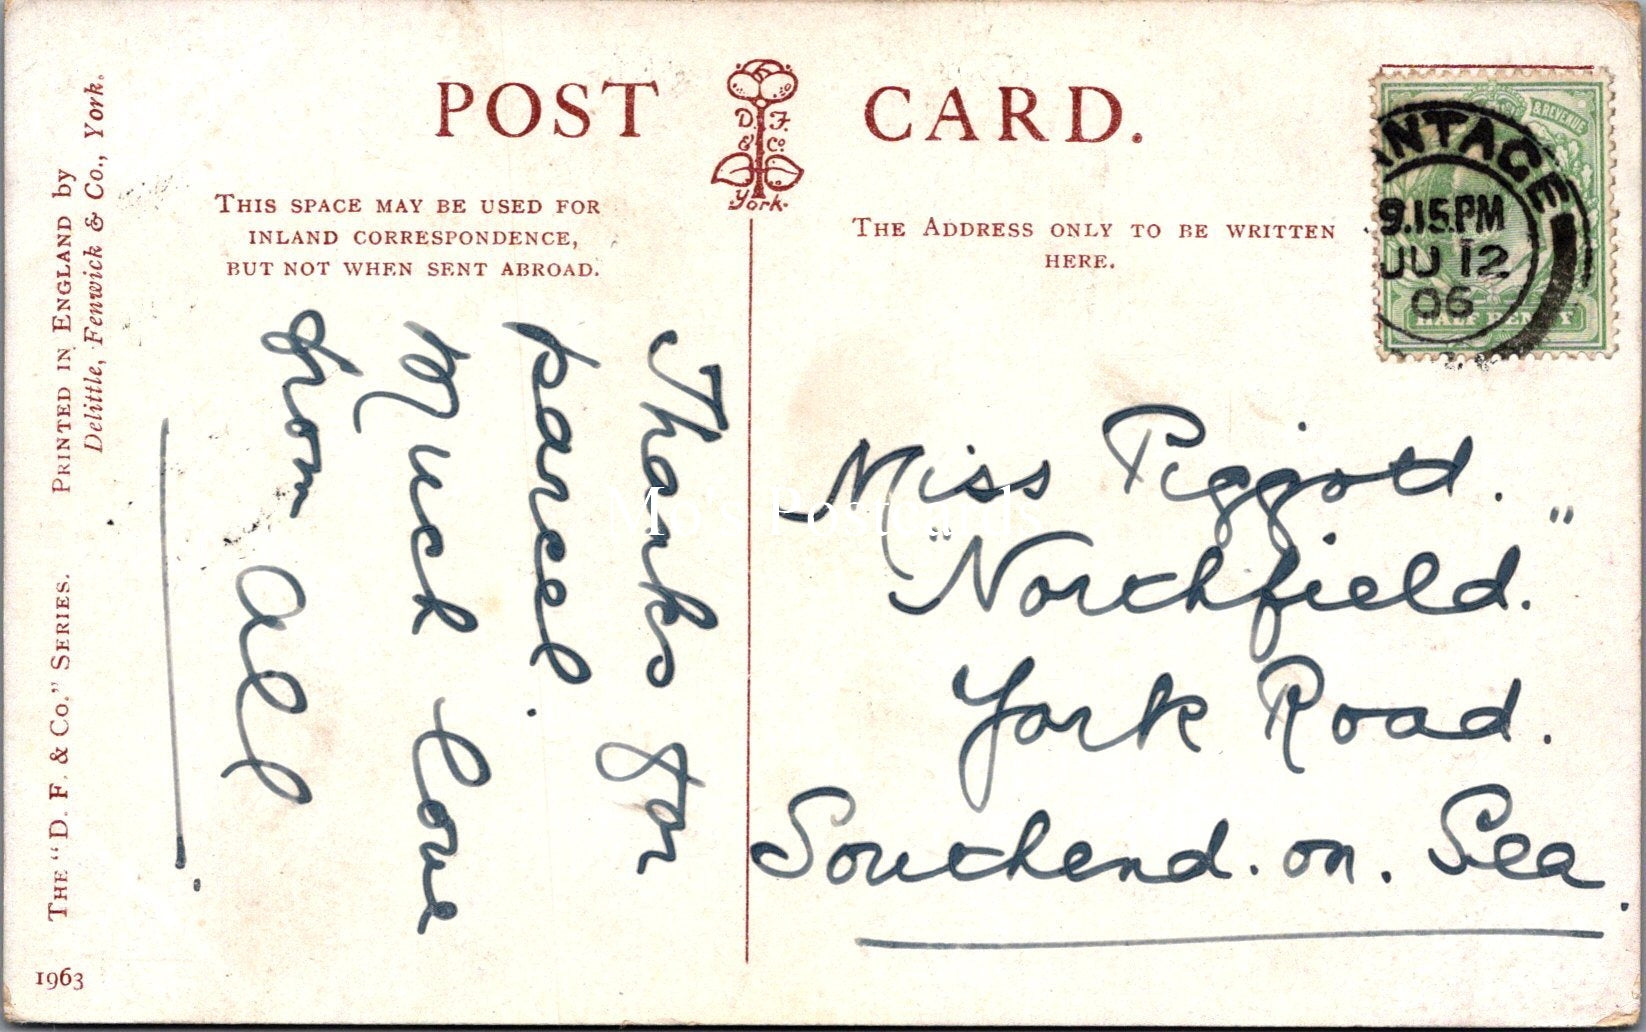 POST CARD.
D. F.
& Co.
York.
THIS SPACE MAY BE USED FOR
INLAND CORRESPONDENCE,
BUT NOT WHEN SENT ABROAD.
THE ADDRESS ONLY TO BE WRITTEN
HERE.
PRINTED IN ENGLAND by
Delittle, Fenwick & Co., York.
THE "D. F. & Co." SERIES.
1963
Thanks for
parcel.
Much love
from all
& REVENUE
HALF PENNY
ANTAGE
9.15.PM
JU 12
06
Miss Piggott.
"Northfield."
York Road.
Southend. on. Sea.
Mo's Postcards